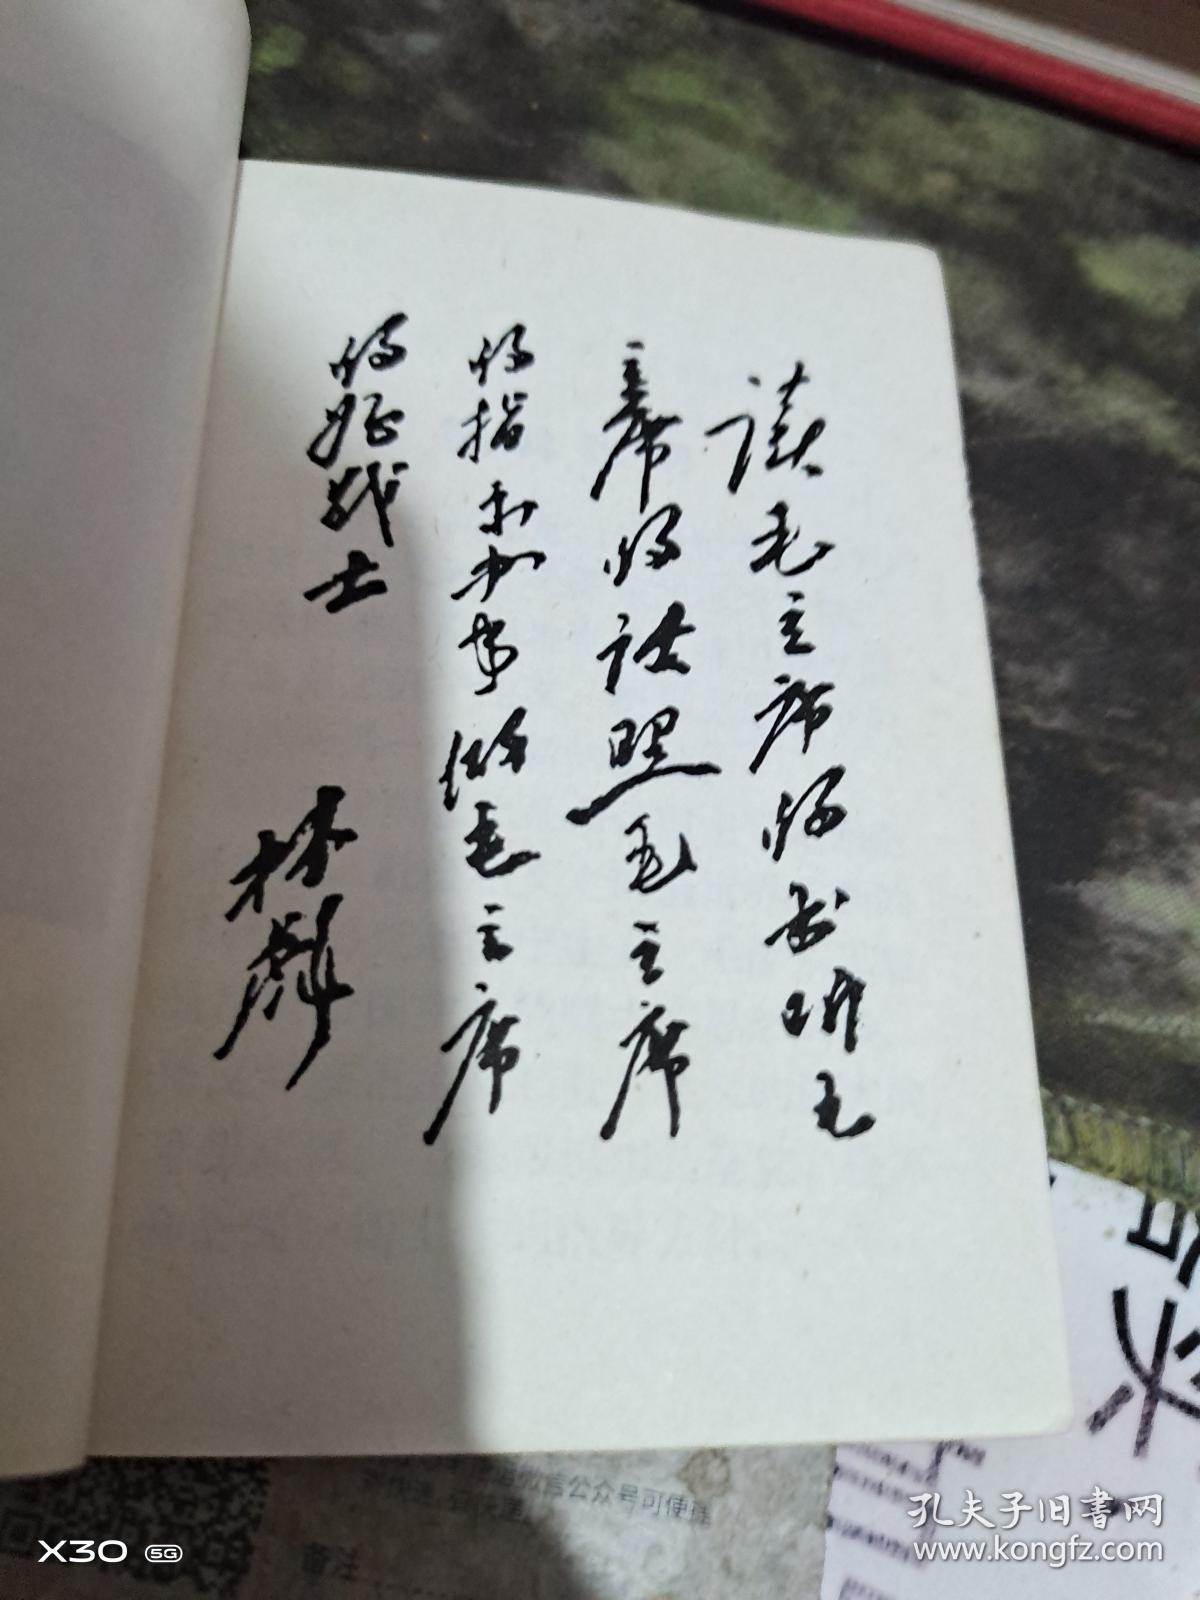 读毛主席的书听毛
主席的话照毛主席
的指示办事做毛主席
的好战士
林彪
微信公众号可使连
备注
X30 5G
孔夫子旧书网
www.kongfz.com